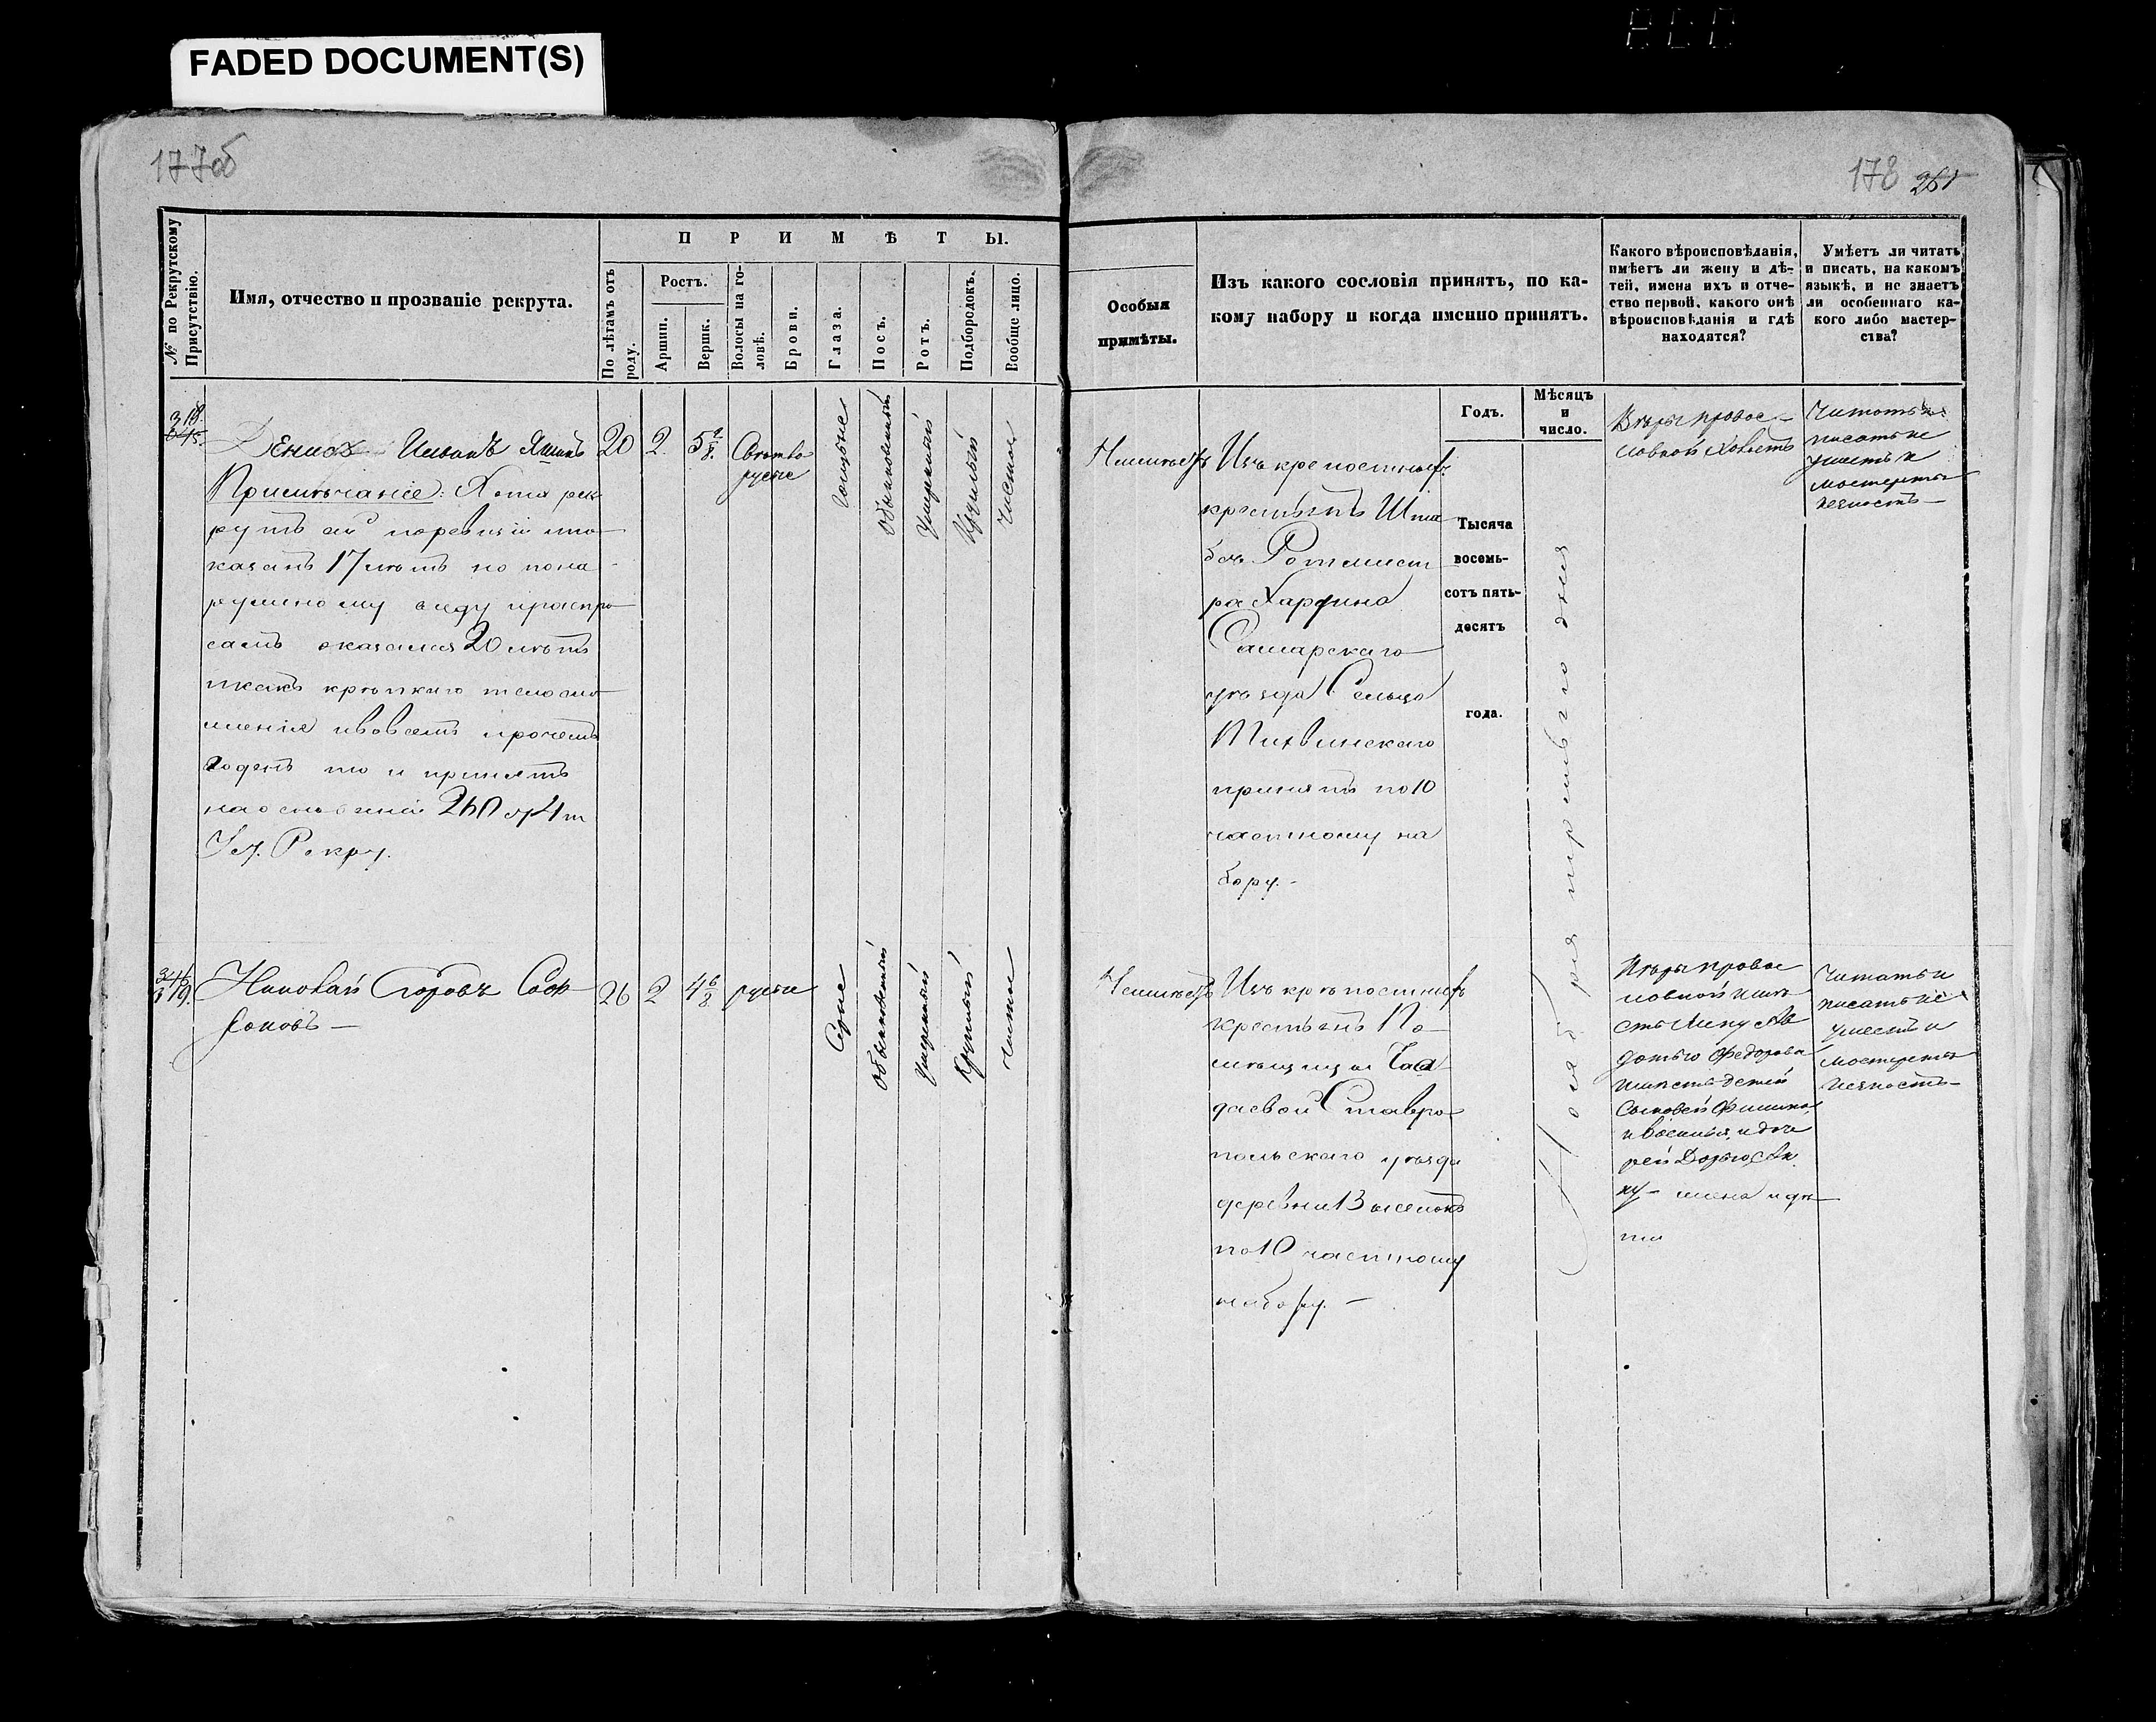 FADED DOCUMENT(S)
177об
178 261
№ по Рекрутскому
Присутствію.
Имя, отчество и прозваніе рекрута.
ПРИМѢТЫ.
По лѣтамъ отъ
роду.
Ростъ.
Аршин.
Вершк.
Волосы на го-
ловѣ.
Брови.
Глаза.
Носъ.
Ротъ.
Подбородокъ.
Вообще лицо.
Особыя
примѣты.
Изъ какого сословія принятъ, по ка-
кому набору и когда именно принятъ.
Какого вѣроисповѣданія,
имѣетъ ли жену и дѣ-
тей, имена ихъ и отче-
ство первой, какого онѣ
вѣроисповѣданія и гдѣ
находятся?
Умѣетъ ли читать
и писать, на какомъ
языкѣ, и не знаетъ
ли особеннаго ка-
кого либо мастер-
ства?
Годъ.
Мѣсяцъ
и
число.
318.
Денисъ Ивановъ Яшинъ
Примѣчаніе: Хотя рек
рутъ сей поревизіи по
казанъ 17 лѣтъ но пона
ружному виду ираспро
самъ оказался 20 лѣтъ
икакъ крѣпкаго тѣлосло
женія ивовсемъ прочемъ
годенъ то и принятъ
наоснованіи 260 ст 4 т
Уст. Рекру.
20
2.
5 /8.
Свѣтло
русые
обыкновенный
умѣренный
чистое
Неимѣетъ
Изъ крепостныхъ
крестьянъ Шта
бсъ Ротмист
ра Хардина
Самарскаго
уѣзда Сельца
Тихвинскаго
принятъ по 10
частному на
бору.-
Тысяча
восемь-
сотъ пять-
десятъ
года.
Ноября третьяго дня
Вѣры правос-
лавной холостъ
Читать и
писать не
умѣетъ и
мастерства
незнаетъ-
319.
Николай Егоровъ Саф
роновъ-
26
2
4 6/8
русые
Серые
Обыкновенный
умѣренный
Круглый
чистое
Неимѣетъ
Изъ крѣпостныхъ
крестьянъ По-
мѣщицы
даевой Ставро-
польскаго уѣзда
деревни Выселокъ
по 10 частному
набору.-
Вѣры правос
лавной имѣ
етъ жену Ав
дотью Федорова
имѣетъ детей
Сыновей Филипа
и Василья, и доче
рей Дарью, Ан
ну- жена и дѣ-
ти
Читать и
писать не
умѣетъ и
мастерства
незнаетъ-